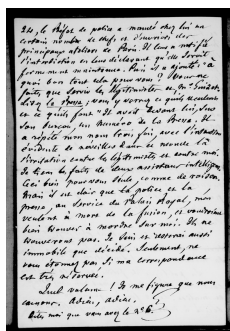 24, le Préfet de police a mandé chez lui un
certain nombre de chefs et d'ouvriers des
principaux ateliers de Paris. Il leur a notifié
l'interdiction en leur déclarant qu'elle serait
fermement maintenue. Puis il a ajouté : "à
quoi bon tout cela pour vous ? Vous ne
faites que servir les légitimistes et Mr Guizot.
Lisez la Presse, vous y verrez ce qu'ils veulent
et ce qu'ils font." Il avait devant lui, sur
son bureau, un numéro de la Presse. Il
a répété son nom trois fois, avec l'intention
évidente de
l'irritation contre les légitimistes et contre moi.
Je tiens le fait de deux assistants intelligents.
Ceci bien pour vous seule, comme de raison.
Mais il est clair que la police et la
Presse, au service du Palais Royal, nous
veulent à mort de la fusion, et voudraient
bien trouver à mordre sur moi. Ils ne
trouveront pas. Je suis et resterai aussi
immobile que décidé. Seulement, ne
vous étonnez pas si ma correspondance
est très réservée.
Quel volume ! Je me figure que nous
causons. Adieu, adieu.
Dites moi que vous avez le n° 6.